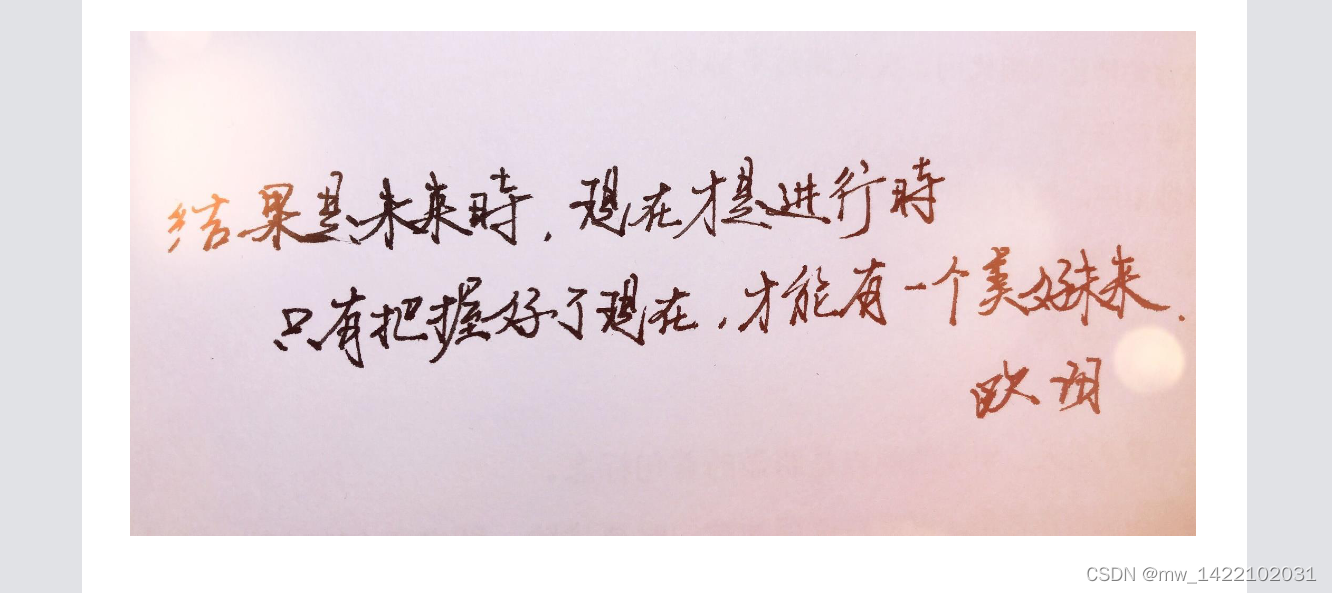 结果是未来時，现在才是进行時
只有把握好了现在，才能有一个美好未来.
CSDN @mw_1422102031